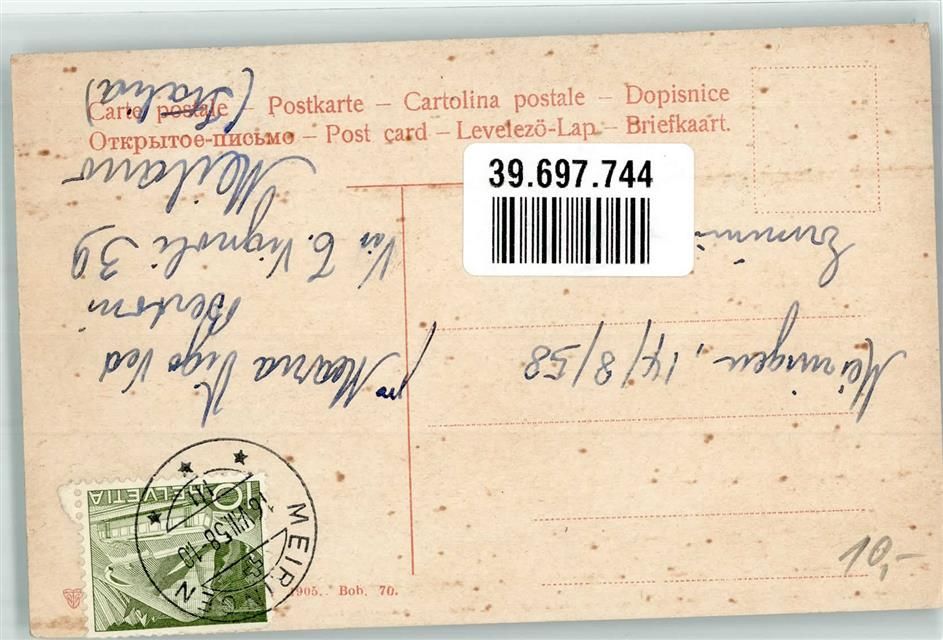 Carte postale – Postkarte – Cartolina postale – Dopisnice
Открытое-письмо – Post card – Levelezö-Lap – Briefkaart.
39.697.744
Meiringen, 14/8/58
Maria Vigo Ved
Bertoni
Via T. Vignoli 39
Milano
(Italia)
HELVETIA
10
16.VIII.58-10
1905. Bob. 70.
10,-